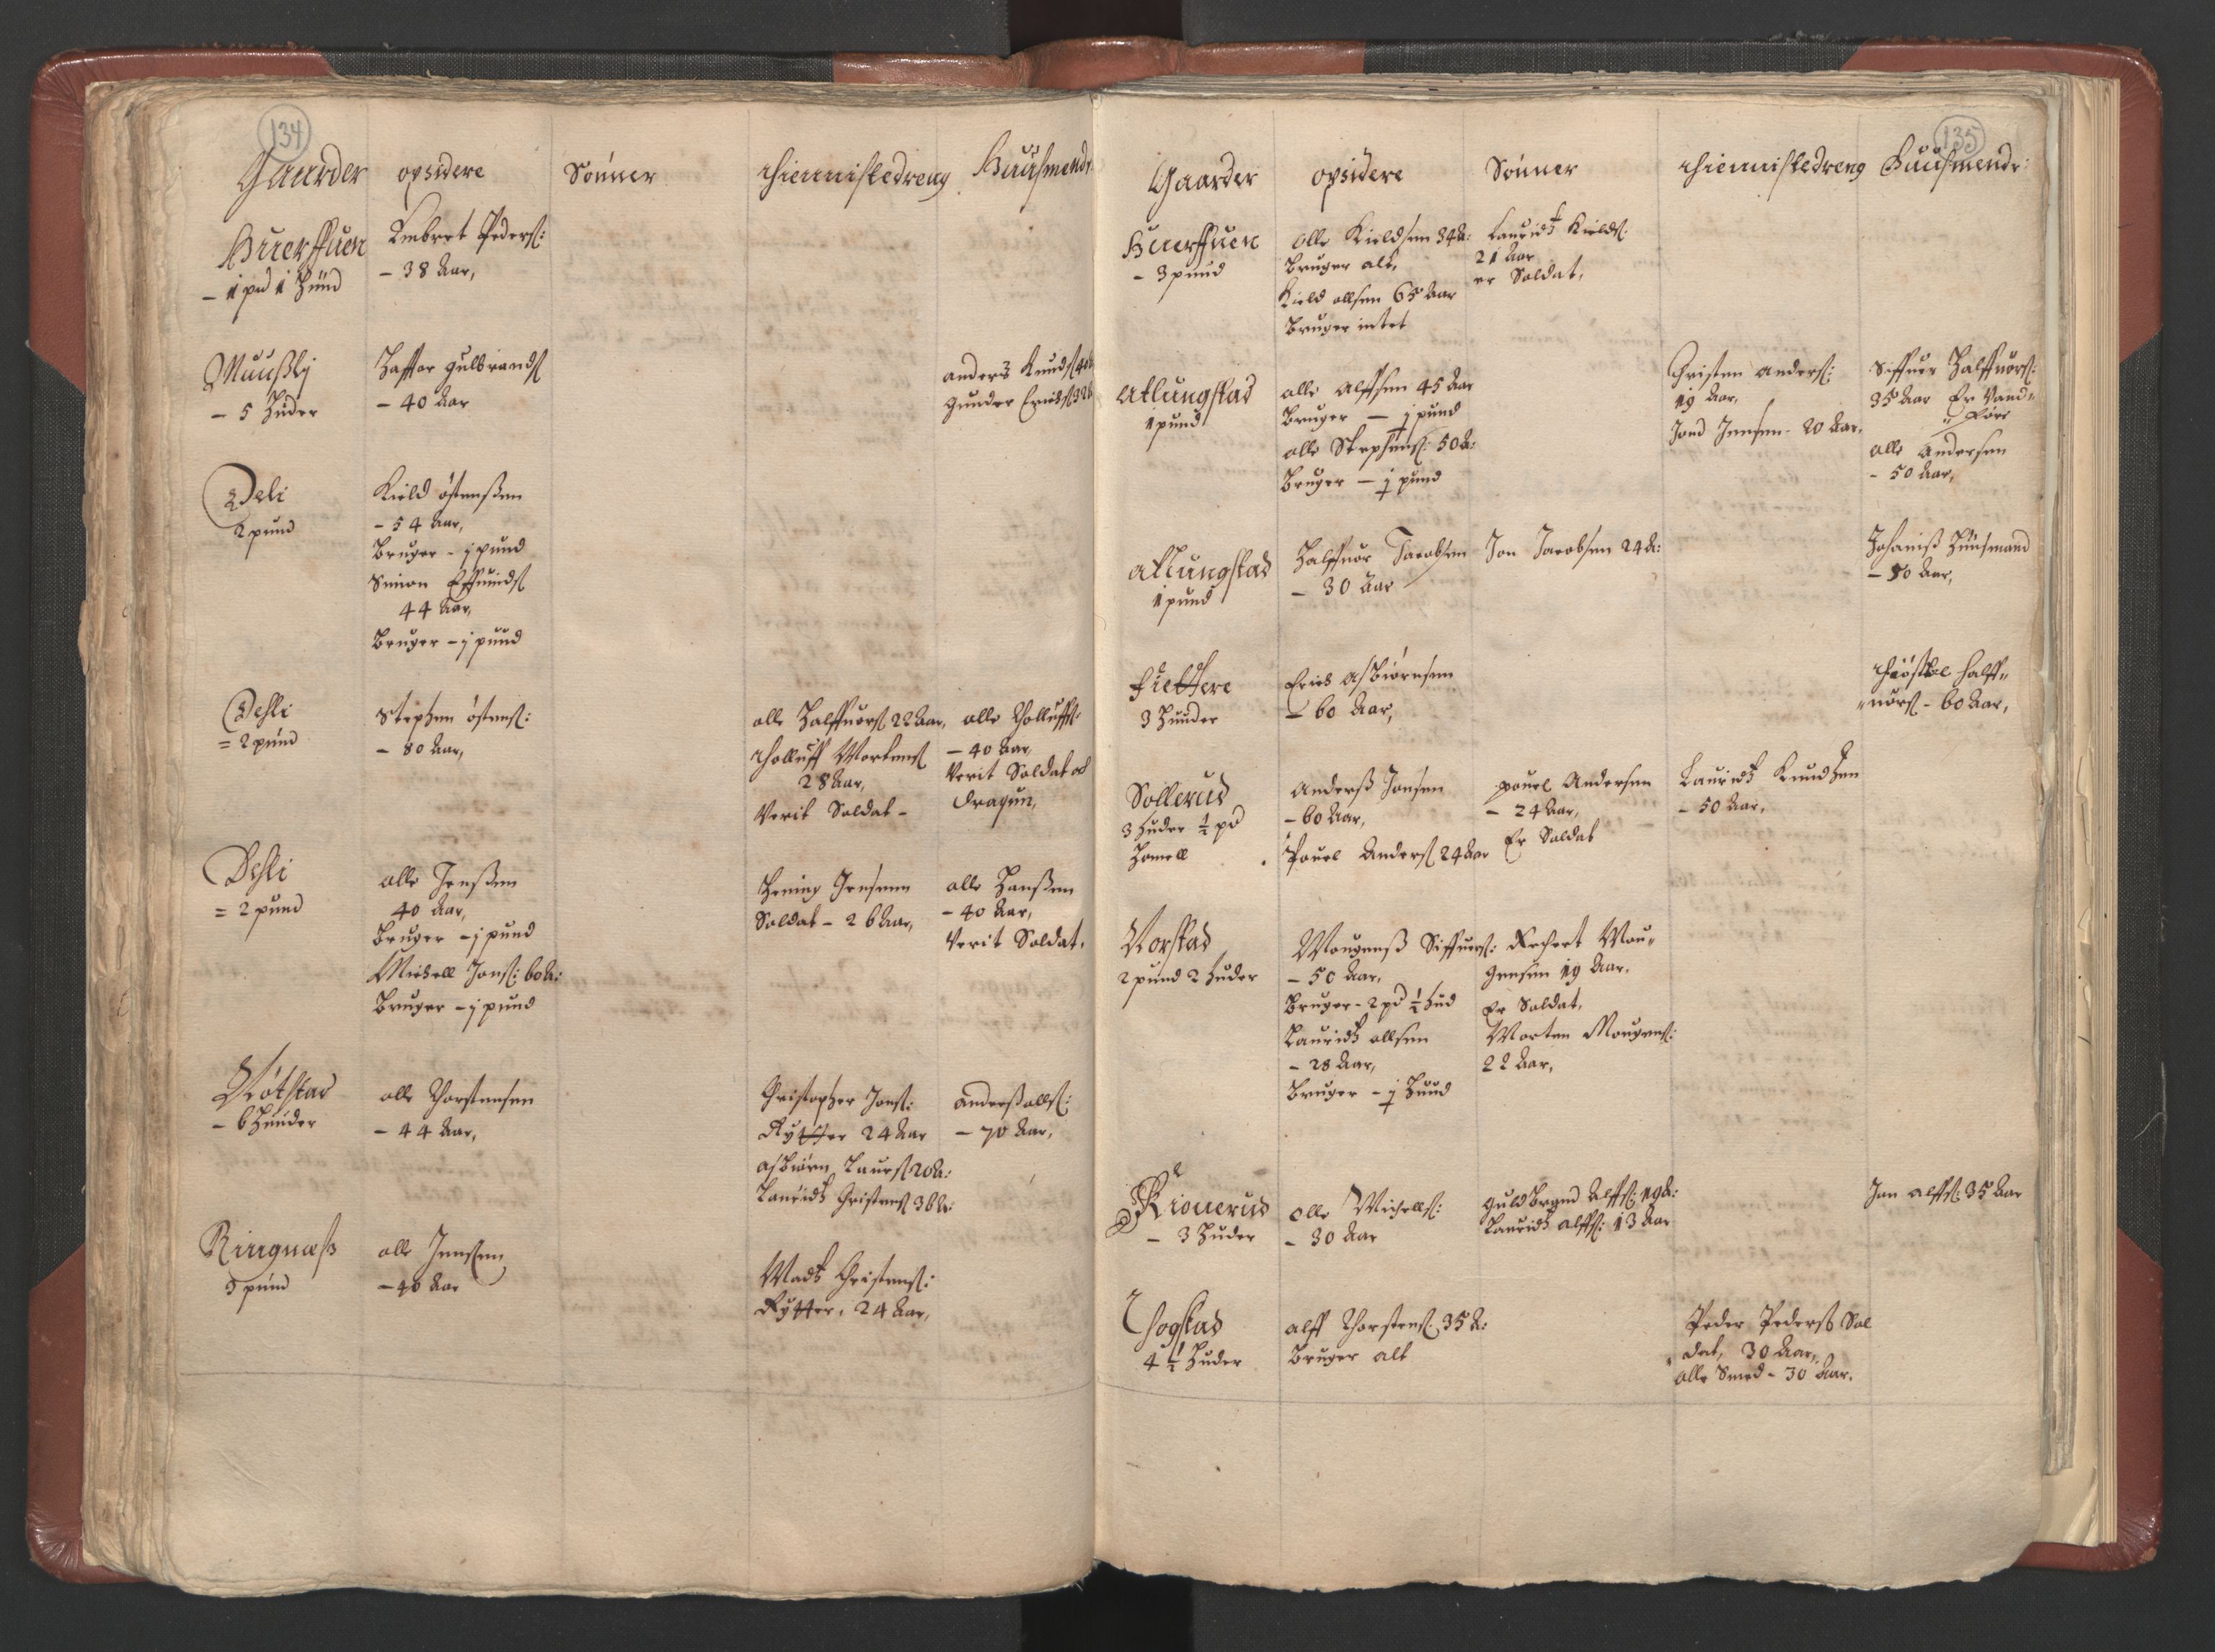 134
Gaarder opsidere Sønner Thiennistedreng Huusmendr:
Huerffuen
- 1 pd 1 Hund
Embret Peders:
- 38 Aar,
Muusli
- 5 Huder
Haffor gulbrands
- 40 Aar
anders Knuds 40
gunder Erichs 32
Deli
2 pund
Kield østenßen
- 54 Aar,
Bruger - j pund
Simon
44 Aar,
Bruger - j pund
Dehli
= 2 pund
Stephen østens:
- 80 Aar,
olle Halffuors 22 Aar,
Tholluff Mortens
28 Aar,
Verit Soldat -
olle Tholluffs:
- 40 Aar,
Verit Soldat och
Dragun,
Dehli
= 2 pund
olle Jenßen
40 Aar,
Bruger - j pund
Michell Jons: 60 A:
Bruger - j pund
Hening Jensenn
Soldat - 26 Aar,
olle Hanßen
- 40 Aar,
Verit Soldat,
Røtstad
- 6 Hunder
olle Thorstensen
- 44 Aar,
Christopher Jons:
Rytter 24 Aar
asbiørn Laurs 20 A:
Lauridtz Christens 36 A:
anderß olls:
- 70 Aar,
Ringnæß
3 pund
olle Jensen
- 40 Aar
Madtz Christens:
Rytter, 24 Aar,
135
Gaarder opsidere Sønner Thiennistedreng Huusmendr:
Huerffuen
- 3 pund
Olle Kieldsen 34 A:
Bruger alt,
Kield ollsen 65 Aar
Bruger intet
Lauridtz Kields:
21 Aar
er Soldat,
Atlungstad
1 pund
olle Alffsen 45 Aar
Bruger - j pund
olle Stephens: 50 A:
Bruger - j pund
Christen anders:
19 Aar,
Jond Jensen - 20 Aar,
Siffuer Halffuors:
35 Aar Er Vand„
„ føre
olle Andersen
- 50 Aar,
Atlungstad
1 pund
Halffuor Jacobsen
- 30 Aar
Jon Jacobsen 24 A:
Johaniß Huusmand
- 50 Aar,
fiettere
3 Hunder
Erich Asbiørnsen
- 60 Aar,
Thiøstel Halff„
„uors - 60 Aar,
Sollerud
3 Huder ½ pd
Anderß Jonsen
- 60 Aar,
Pouel Anders 24 Aar
pouel Andersen
- 24 Aar,
Er Soldat
Lauridtz Knudßen
- 50 Aar,
Norstad
2 pund 2 Huder
Mougenß Siffuers:
- 50 Aar,
Bruger - 2 pd ½ Hud
Lauridtz ollsen
- 28 Aar,
Bruger - j Hund
Rechert Mou„
gensen 19 Aar,
Er Soldat,
Morten Mougens:
22 Aar,
Kiouerud
- 3 Huder
olle Michells:
- 30 Aar
guldbrand Alffs: 19 A:
Lauridtz Alffs: 13 Aar
Jon alffs: 35 Aar
Thogstad
4 ½ Huder
alff Thorstens: 35 A:
Bruger alt
Peder Pederß Sol
dat, 30 Aar,
olle Smed - 30 Aar.